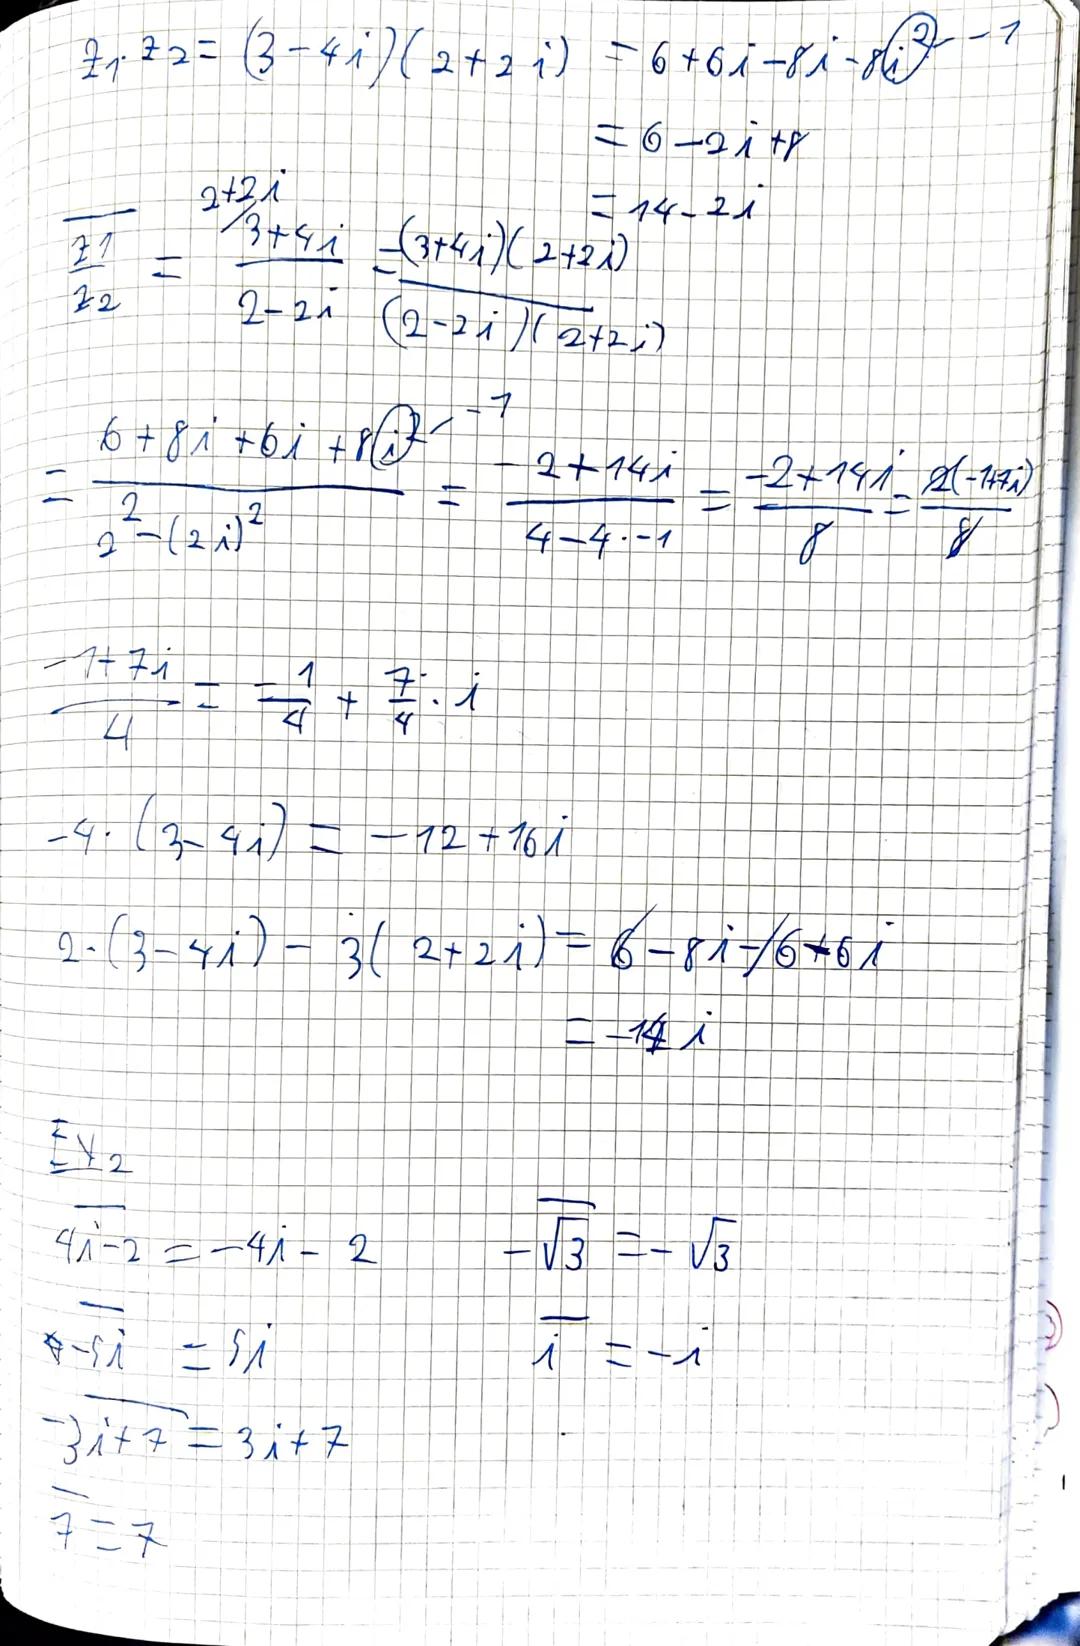 z1·z2 = (3-4i)(2+2i) = 6+6i-8i-8i² -1
= 6-2i+8
= 14-2i
2+2i
\overline{z1/z2} = (3+4i)/(2-2i) = (3+4i)(2+2i)/(2-2i)(2+2i)
= (6+8i+6i+8i²)/(2²-(2i)²) -1 = (-2+14i)/(4-4·-1) = (-2+14i)/8 = 2(-1+7i)/8
(-1+7i)/4 = -1/4 + 7/4 · i
-4·(3-4i) = -12+16i
2·(3-4i)-3(2+2i) = 6-8i-6+6i
= -14i
Ex2
\overline{4i-2} = -4i-2 -\overline{√3} = -√3
\overline{-5i} = 5i \overline{i} = -i
\overline{-3i+7} = 3i+7
\overline{7} = 7